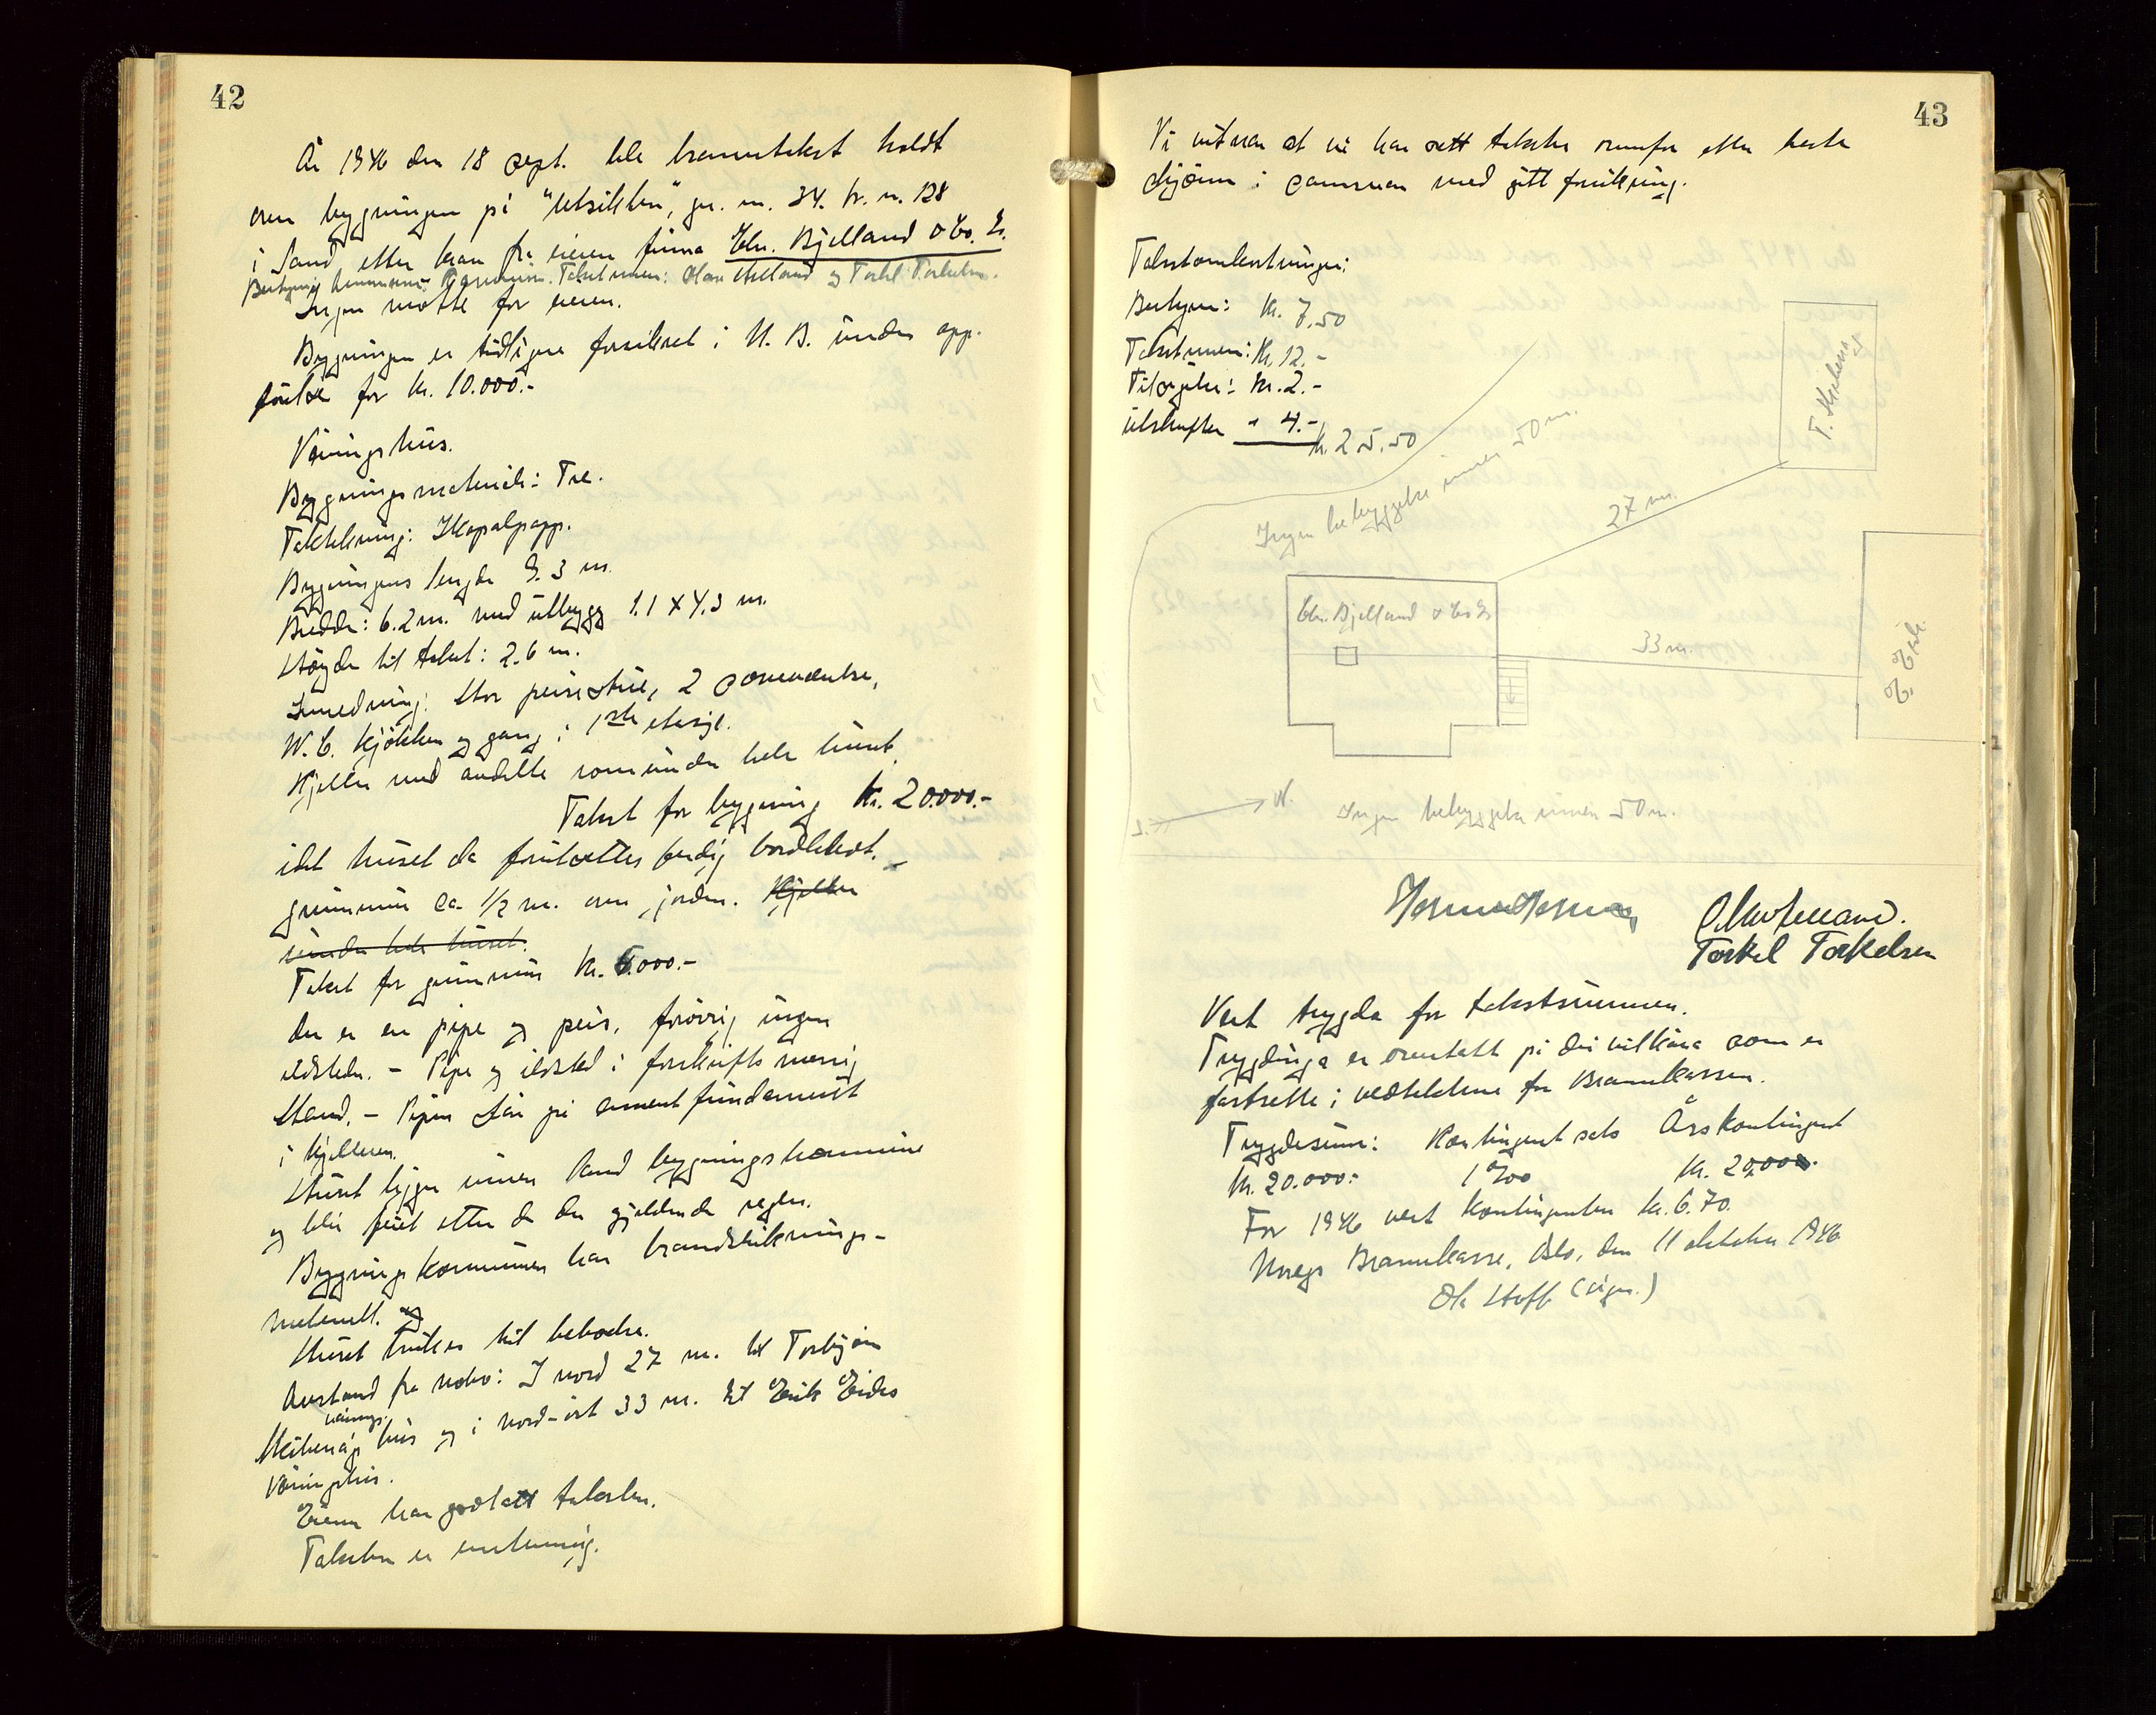 42
År 1946 den 18 sept. ble branntakst holdt
over bygningen på "Utsikten", gr. nr. 34. br. nr. 128
i Sand etter krav fra eieren firma Chr. Bjelland & Co. 
Takstmenn: Olav og Torkel Torkelsen.
Ingen møtte for eieren.
Bygningen er tidligere forsikret i N. B. under opp-
førelse for kr. 10.000.-
Våningshus.
Bygningsmateriale: Tre.
Taktekning: papp.
Bygningens lengde 9.3 m.
Bredde: 6.2 m. med utbygg 1.1 x 4.3 m.
Høyde til taket: 2.6 m.
Innredning: Stor peisestue, 2 soveværelser,
W.C. kjøkken og gang i 1ste etasje.
Kjeller med avdelte rom under hele huset.
Takst for bygning kr. 20.000.-
idet huset da forutsettes ferdig bordkledt.
grunnmur ca. 1/2 m. over jorden. Kjeller
under hele huset.
Takst for grunnmur kr. 5.000.-
Der er en pipe og peis, forøvrig ingen
ildsteder. - Pipe og ildsted i forskriftsmessig
stand. - Pipen står på sementfundament
i kjelleren.
Huset ligger innen Sand bygningskommune
og blir feiet etter de der gjeldende regler.
Bygningskommunen har brandsluknings-
materiell. og
Huset brukes til beboelse.
Avstand fra nabo: I nord 27 m. til Torbjørn
vånings-
hus og i nord-øst 33 m. til Erik Eides
våningshus.
Eieren har godtatt taksten.
Taksten er enstemmig.
43
Vi vitner at vi har sett taksten ovenfor etter beste
skjønn i samsvar med gitt forsikring.
Takstomkostninger:
Bestyrer: kr. 7.50
Takstmenn: kr. 12.-
Tilsigelse: kr. 2.-
utskrifter " 4.-
kr. 25.50
Ingen bebyggelse innen 50 m.
T.
27 m.
Chr. Bjelland & Co
33 m.
E. Eide
S. N.
Ingen bebyggelse innen 50 m.
Torkel Torkelsen
Vert trygda for takstsummen.
Trygdinga er overtatt på dei vilkåra som er
fastsette i vedtektene for Brannkassen.
Trygdesum: Kontingentsats Årskontingent
kr. 20.000.- 1 ‰ kr. 20,00.
For 1946 vert kontingenten kr. 6.70.
Noregs Brannkasse, Oslo, den 11 oktober 1946
(sign.)